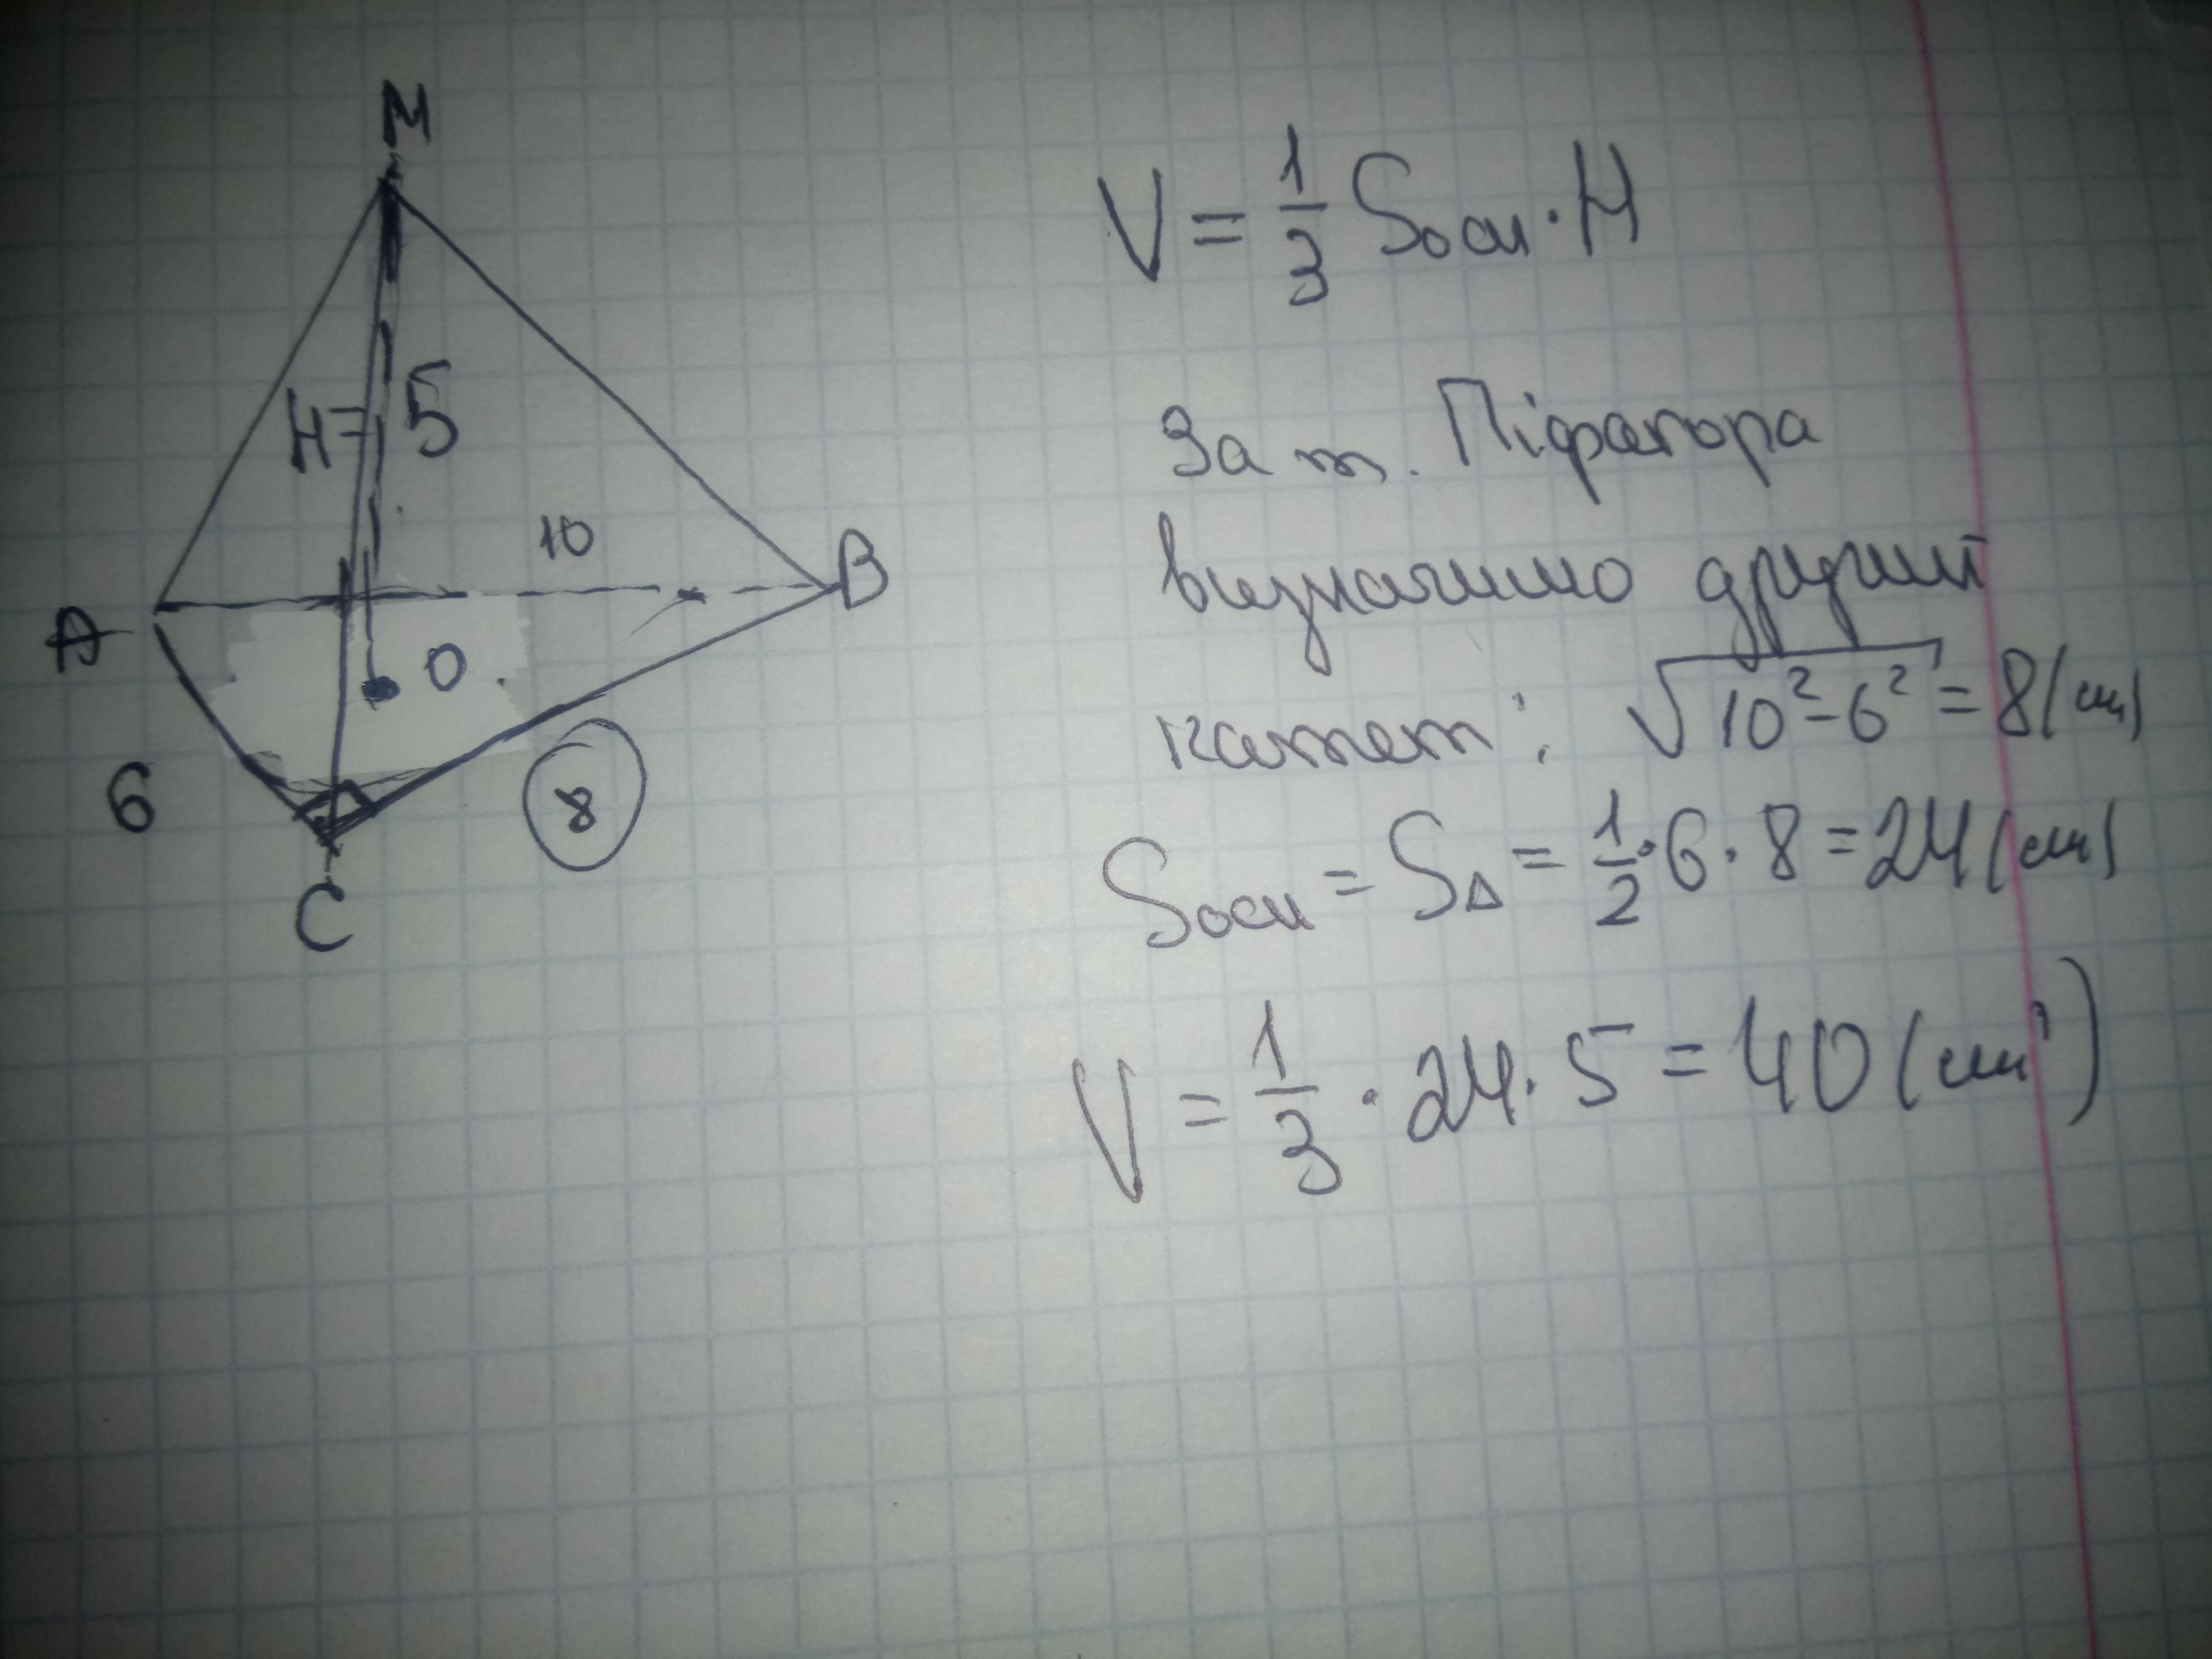 M
H= 5
10
A
B
O
6
8
C
V = 1/3 Sосн · H
За т. Піфагора
визначимо другий
катет: √10² - 6² = 8 (см)
Sосн = S△ = 1/2 · 6 · 8 = 24 (см)
V = 1/3 · 24 · 5 = 40 (см³)